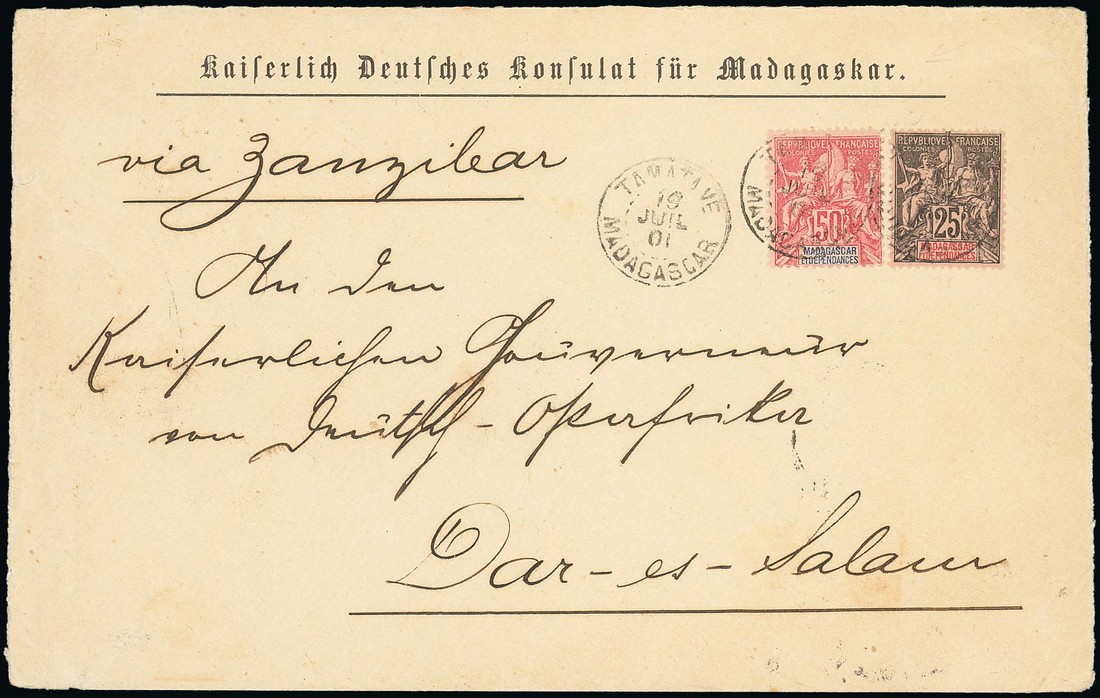 Kaiserlich Deutsches Konsulat für Madagaskar.
via Zanzibar
TAMATAVE
19
JUIL
01
MADAGASCAR
REPVBLIQVE FRANÇAISE
COLONIES POSTES
50
MADAGASCAR
ET DÉPENDANCES
REPVBLIQVE FRANÇAISE
COLONIES POSTES
25
MADAGASCAR
ET DÉPENDANCES
An den
Kaiserlichen Gouverneur
von Deutsch-Ostafrika
Dar-es-Salam